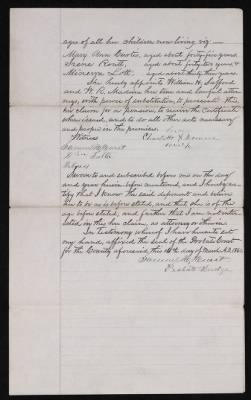 ages of all her children now living viz:—
Mary Ann Custer, aged about forty five years
Irena Routt, aged about forty two years &
Minerva Lott, aged about thirty three years.
She hereby appoints William H. Safford
and W. R. Madeira her true and lawful attor
neys, with power of substitution, to prosecute this
his claim for a pension, to receive the certificate
when issued, and to do all other acts necessary
and proper in the premises.
Witness
Charlotte
mark
Samuel H. Hurst
Sworn to and subscribed before me on the day
and year herein before mentioned, and I hereby cer
tify that I know the said deponent and believe
her to be as is before stated, and that she is of the
age before stated, and further that I am not inter
ested in this her claim, as attorney or otherwise.
In testimony whereof I have hereunto set
my hand, affixed the seal of the Probate Court
for the County aforesaid, this day of March A.D.
Samuel H. Hurst
Probate Judge